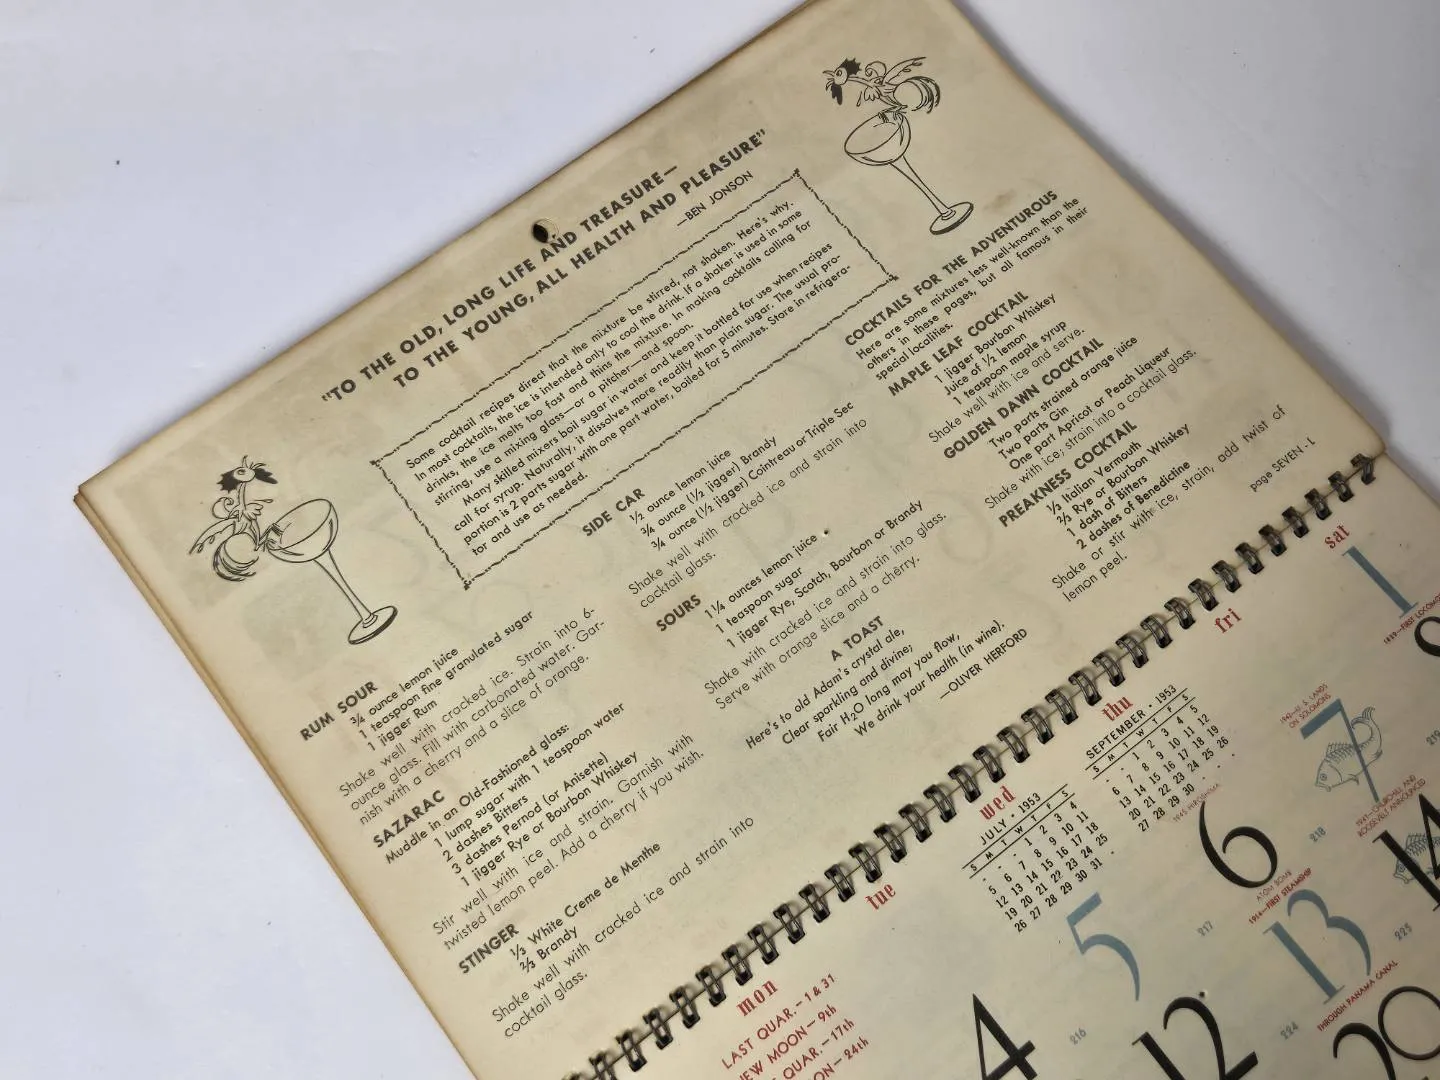 "TO THE OLD, LONG LIFE AND TREASURE—
TO THE YOUNG, ALL HEALTH AND PLEASURE"
—BEN JONSON
Some cocktail recipes direct that the mixture be stirred, not shaken. Here's why.
In most cocktails, the ice is intended only to cool the drink. If a shaker is used in some
drinks, the ice melts too fast and thins the mixture. In making cocktails calling for
stirring, use a mixing glass—or a pitcher—and spoon.
Many skilled mixers boil sugar in water and keep it bottled for use when recipes
call for syrup. Naturally, it dissolves more readily than plain sugar. The usual pro-
portion is 2 parts sugar with one part water, boiled for 5 minutes. Store in refrigera-
tor and use as needed.
RUM SOUR
¾ ounce lemon juice
1 teaspoon fine granulated sugar
1 jigger Rum
Shake well with cracked ice. Strain into 6-
ounce glass. Fill with carbonated water. Gar-
nish with a cherry and a slice of orange.
SAZARAC
Muddle in an Old-Fashioned glass:
1 lump sugar with 1 teaspoon water
2 dashes Bitters
3 dashes Pernod (or Anisette)
1 jigger Rye or Bourbon Whiskey
Stir well with ice and strain. Garnish with
twisted lemon peel. Add a cherry if you wish.
STINGER
⅓ White Creme de Menthe
⅔ Brandy
Shake well with cracked ice and strain into
cocktail glass.
SIDE CAR
½ ounce lemon juice
¾ ounce (½ jigger) Brandy
¾ ounce (½ jigger) Cointreau or Triple Sec
Shake well with cracked ice and strain into
cocktail glass.
SOURS
1¼ ounces lemon juice
1 teaspoon sugar
1 jigger Rye, Scotch, Bourbon or Brandy
Shake with cracked ice and strain into glass.
Serve with orange slice and a cherry.
A TOAST
Here's to old Adam's crystal ale,
Clear sparkling and divine;
Fair H2O long may you flow,
We drink your health (in wine).
—OLIVER HERFORD
COCKTAILS FOR THE ADVENTUROUS
Here are some mixtures less well-known than the
others in these pages, but all famous in their
special localities.
MAPLE LEAF COCKTAIL
1 jigger Bourbon Whiskey
Juice of ½ lemon
1 teaspoon maple syrup
Shake well with ice and serve.
GOLDEN DAWN COCKTAIL
Two parts strained orange juice
Two parts Gin
One part Apricot or Peach Liqueur
Shake with ice; strain into a cocktail glass.
PREAKNESS COCKTAIL
⅓ Italian Vermouth
⅔ Rye or Bourbon Whiskey
1 dash of Bitters
2 dashes of Benedictine
Shake or stir with ice, strain, add twist of
lemon peel.
page SEVEN - L
mon
tue
wed
thu
fri
sat
LAST QUAR.—1 & 31
NEW MOON—9th
QUAR.—17th
MOON—24th
JULY • 1953
S M T W T F S
- - - 1 2 3 4
5 6 7 8 9 10 11
12 13 14 15 16 17 18
19 20 21 22 23 24 25
26 27 28 29 30 31 -
SEPTEMBER • 1953
S M T W T F S
- - 1 2 3 4 5
6 7 8 9 10 11 12
13 14 15 16 17 18 19
20 21 22 23 24 25 26
27 28 29 30 - - -
1
1829—FIRST LOCOMO
4
216
5
217
1945 HIROSHIMA
ATOM BOMB
6
218
1942—U. S. LANDS
ON SOLOMONS
7
219
12
224
1914—FIRST STEAMSHIP
THROUGH PANAMA CANAL
13
225
1941—CHURCHILL AND
ROOSEVELT ANNOUNCED
14
20